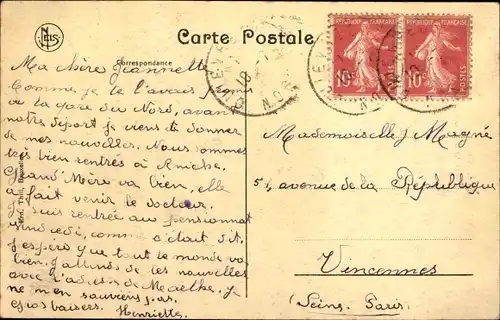 Carte Postale
Correspondance
Ma chère Jeannette
Comme je te l'avais promis
à la gare du Nord, avant
notre départ je viens te donner
de mes nouvelles. Nous sommes
très bien rentrés à Aniche.
Grand'Mère va bien, elle
fait venir le docteur.
suis rentrée au pensionnat
comme c'était dit.
J'espère que tout le monde va
bien. J'attends de tes nouvelles
avec l'adresse de
ne m'en souviens pas.
Gros baisers.
Henriette
RÉPUBLIQUE FRANÇAISE
10
POSTES
RÉPUBLIQUE FRANÇAISE
10
POSTES
Mademoiselle J Magné
5, avenue de la République
Vincennes
(Seine. Paris.
Ern. Thill, Bruxelles
NELS